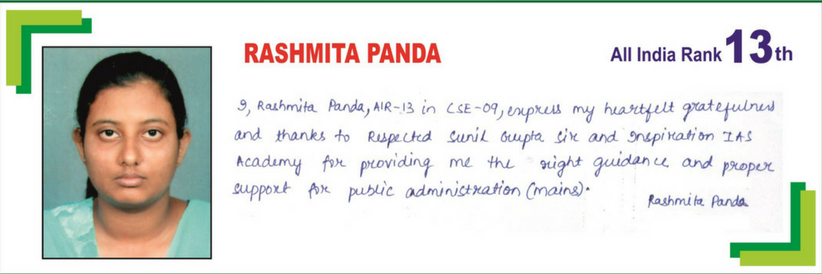 RASHMITA PANDA
All India Rank 13th
I, Rashmita Panda, AIR-13 in CSE-09, express my heartfelt gratefulness
and thanks to Respected Sunil Gupta Sir and Inspiration IAS
Academy for providing me the right guidance and proper
support for public administration (mains).
Rashmita Panda